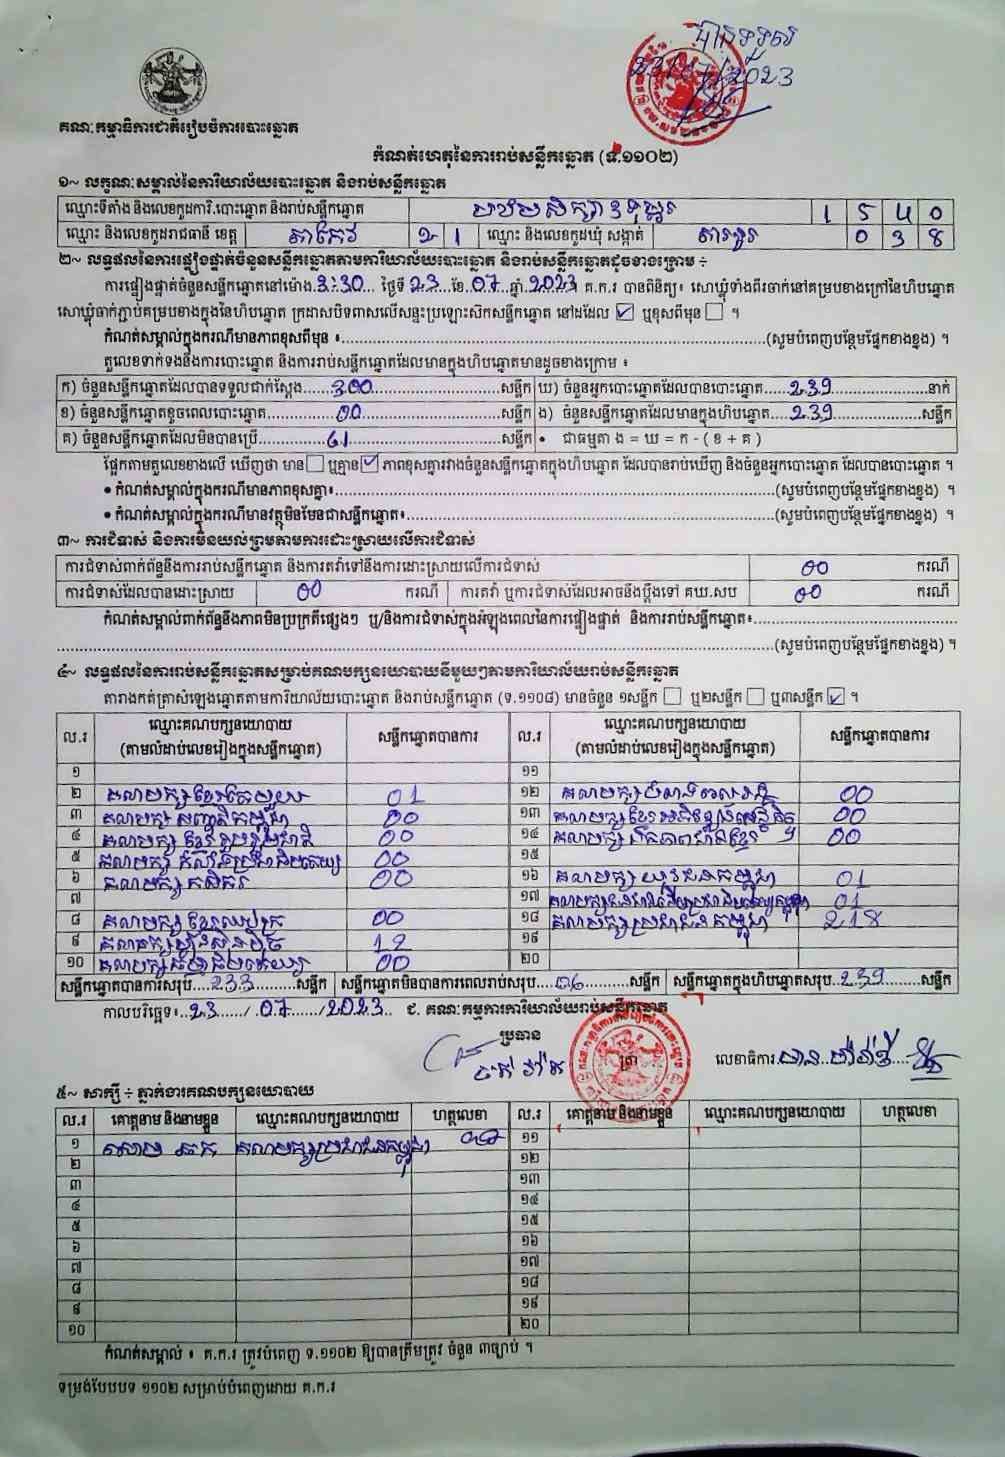 បានទទួល
23/07/2023
គណៈកម្មាធិការជាតិរៀបចំការបោះឆ្នោត
កំណត់ហេតុនៃការរាប់សន្លឹកឆ្នោត (ទ.១១០២)
១~ លក្ខណៈសម្គាល់នៃការិយាល័យបោះឆ្នោត និងរាប់សន្លឹកឆ្នោត
ឈ្មោះទីតាំង និងលេខកូដការិ.បោះឆ្នោត និងរាប់សន្លឹកឆ្នោត បឋមសិក្សា 1 5 4 0
ឈ្មោះ និងលេខកូដរាជធានី ខេត្ត តាកែវ 2 1 ឈ្មោះ និងលេខកូដឃុំ សង្កាត់ 0 3 8
២~ លទ្ធផលនៃការផ្ទៀងផ្ទាត់ចំនួនសន្លឹកឆ្នោតតាមការិយាល័យបោះឆ្នោត និងរាប់សន្លឹកឆ្នោតដូចខាងក្រោម ÷
ការផ្ទៀងផ្ទាត់ចំនួនសន្លឹកឆ្នោតនៅម៉ោង.3:30... ថ្ងៃទី 23..ខែ.07..ឆ្នាំ.2023.។ គ.ក.រ បានពិនិត្យ៖ សោឃ្លុំទាំងពីរចាក់នៅគម្របខាងក្រៅនៃហិបឆ្នោត
សោឃ្លុំចាក់ភ្ជាប់គម្របខាងក្នុងនៃហិបឆ្នោត ក្រដាសបិទពាសលើសន្ទះប្រឡោះសិកសន្លឹកឆ្នោត នៅដដែល ☑ ឬខុសពីមុន ☐ ។
កំណត់សម្គាល់ក្នុងករណីមានភាពខុសពីមុន ៖...(សូមបំពេញបន្ថែមផ្នែកខាងខ្នង) ។
តួលេខទាក់ទងនឹងការបោះឆ្នោត និងការរាប់សន្លឹកឆ្នោតដែលមានក្នុងហិបឆ្នោតមានដូចខាងក្រោម ៖
ក) ចំនួនសន្លឹកឆ្នោតដែលបានទទួលជាក់ស្តែង.....300.....សន្លឹក ឃ) ចំនួនអ្នកបោះឆ្នោតដែលបានបោះឆ្នោត....239.....នាក់
ខ) ចំនួនសន្លឹកឆ្នោតខូចពេលបោះឆ្នោត.....00.....សន្លឹក ង) ចំនួនសន្លឹកឆ្នោតដែលមានក្នុងហិបឆ្នោត....239.....សន្លឹក
គ) ចំនួនសន្លឹកឆ្នោតដែលមិនបានប្រើ.....61.....សន្លឹក • ជាធម្មតា ង = ឃ = ក - ( ខ + គ )
ផ្អែកតាមតួលេខខាងលើ ឃើញថា មាន ☐ ឬគ្មាន ☑ ភាពខុសគ្នារវាងចំនួនសន្លឹកឆ្នោតក្នុងហិបឆ្នោត ដែលបានរាប់ឃើញ និងចំនួនអ្នកបោះឆ្នោត ដែលបានបោះឆ្នោត ។
• កំណត់សម្គាល់ក្នុងករណីមានភាពខុសគ្នា៖...(សូមបំពេញបន្ថែមផ្នែកខាងខ្នង) ។
• កំណត់សម្គាល់ក្នុងករណីមានវត្ថុមិនមែនជាសន្លឹកឆ្នោត៖...(សូមបំពេញបន្ថែមផ្នែកខាងខ្នង) ។
៣~ ការជំទាស់ និងការមិនយល់ព្រមតាមការដោះស្រាយលើការជំទាស់
ការជំទាស់ពាក់ព័ន្ធនឹងការរាប់សន្លឹកឆ្នោត និងការតវ៉ាទៅនឹងការដោះស្រាយលើការជំទាស់ 00 ករណី
ការជំទាស់ដែលបានដោះស្រាយ 00 ករណី ការតវ៉ា ឬការជំទាស់ដែលអាចនឹងប្តឹងទៅ គឃ.សប 00 ករណី
កំណត់សម្គាល់ពាក់ព័ន្ធនឹងភាពមិនប្រក្រតីផ្សេងៗ ឬ/និងការជំទាស់ក្នុងអំឡុងពេលនៃការផ្ទៀងផ្ទាត់ និងការរាប់សន្លឹកឆ្នោត៖...
...(សូមបំពេញបន្ថែមផ្នែកខាងខ្នង) ។
៤~ លទ្ធផលនៃការរាប់សន្លឹកឆ្នោតសម្រាប់គណបក្សនយោបាយនីមួយៗតាមការិយាល័យរាប់សន្លឹកឆ្នោត
តារាងកត់ត្រាសំឡេងឆ្នោតតាមការិយាល័យបោះឆ្នោត និងរាប់សន្លឹកឆ្នោត (ទ.១១០៨) មានចំនួន ១សន្លឹក ☐ ឬ២សន្លឹក ☐ ឬ៣សន្លឹក ☑ ។
ល.រ ឈ្មោះគណបក្សនយោបាយ (តាមលំដាប់លេខរៀងក្នុងសន្លឹកឆ្នោត) សន្លឹកឆ្នោតបានការ ល.រ ឈ្មោះគណបក្សនយោបាយ (តាមលំដាប់លេខរៀងក្នុងសន្លឹកឆ្នោត) សន្លឹកឆ្នោតបានការ
១ ១១
២ គណបក្សខ្មែរតែមួយ 01 ១២ គណបក្ស 00
៣ គណបក្សសញ្ជាតិកម្ពុជា 00 ១៣ គណបក្សខ្មែរអភិវឌ្ឍន៍សេដ្ឋកិច្ច 00
៤ គណបក្សខ្មែររួបរួមជាតិ 00 ១៤ គណបក្សឯកភាពជាតិខ្មែរ 00
៥ គណបក្សកំលាំងប្រជាធិបតេយ្យ 00 ១៥
៦ គណបក្សកសិករ 00 ១៦ គណបក្សយុវជនកម្ពុជា 01
៧ ១៧ 01
៨ គណបក្សខ្មែរឈប់ក្រ 00 ១៨ គណបក្សប្រជាជនកម្ពុជា 218
៩ គណបក្សហ៊្វុនស៊ិនប៉ិច 12 ១៩
១០ គណបក្សធម្មាធិបតេយ្យ 00 ២០
សន្លឹកឆ្នោតបានការសរុប....233.......សន្លឹក សន្លឹកឆ្នោតមិនបានការពេលរាប់សរុប....06......សន្លឹក សន្លឹកឆ្នោតក្នុងហិបឆ្នោតសរុប..239.......សន្លឹក
កាលបរិច្ឆេទ៖..23....../ .07....../2023.. ជ. គណៈកម្មការការិយាល័យរាប់សន្លឹកឆ្នោត
ប្រធាន
ត្រា លេខាធិការ
៥~ សាក្សី ÷ ភ្នាក់ងារគណបក្សនយោបាយ
ល.រ គោត្តនាម និងនាមខ្លួន ឈ្មោះគណបក្សនយោបាយ ហត្ថលេខា ល.រ គោត្តនាម និងនាមខ្លួន ឈ្មោះគណបក្សនយោបាយ ហត្ថលេខា
១ គណបក្សប្រជាជនកម្ពុជា ១១
២ ១២
៣ ១៣
៤ ១៤
៥ ១៥
៦ ១៦
៧ ១៧
៨ ១៨
៩ ១៩
១០ ២០
កំណត់សម្គាល់ ៖ គ.ក.រ ត្រូវបំពេញ ទ.១១០២ ឱ្យបានត្រឹមត្រូវ ចំនួន ៣ច្បាប់ ។
ទម្រង់បែបបទ ១១០២ សម្រាប់បំពេញដោយ គ.ក.រ